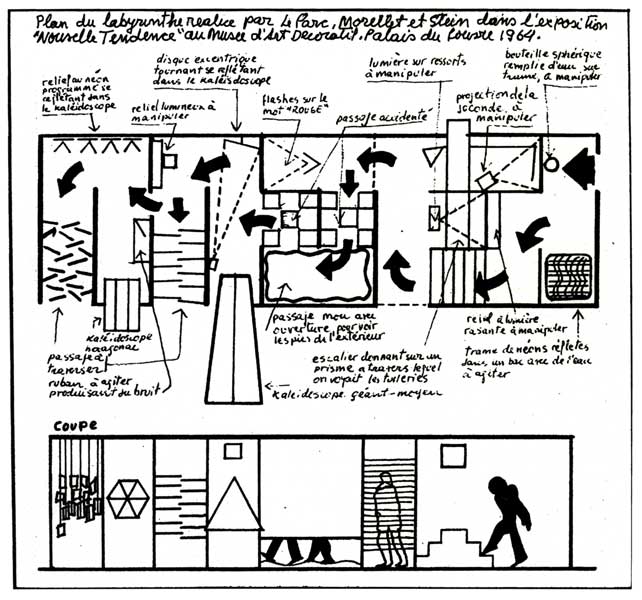 Plan du labyrinthe realice par Le Parc, Morellet et Stein dans l'exposition
"Nouvelle Tendence" au Musée d'Art Decoratif. Palais du Louvre 1964.
relief au néon
programmé se
refletant dans
le kaleidoscope
disque excentrique
tournant se reflétant
dans le kaleidoscope
relief lumineux à
manipuler
flashes sur le
mot "ROUGE"
passage accidenté
lumière sur ressorts
à manipuler
projection de la
seconde à
manipuler
bouteille sphérique
remplie d'eau sur
trame, à manipuler
kaleidoscope
hexagonal
passage à
traverser
ruban à agiter
produisant du bruit
passage mou avec
ouverture pour voir
les pies de l'exterieur
escalier donnant sur un
prisme a travers lequel
on voyait les tuileries
kaleidoscope géant-moyen
relief à lumière
rasante à manipuler
trame de néons réfletés
dans un bac avec de l'eau
à agiter
coupe